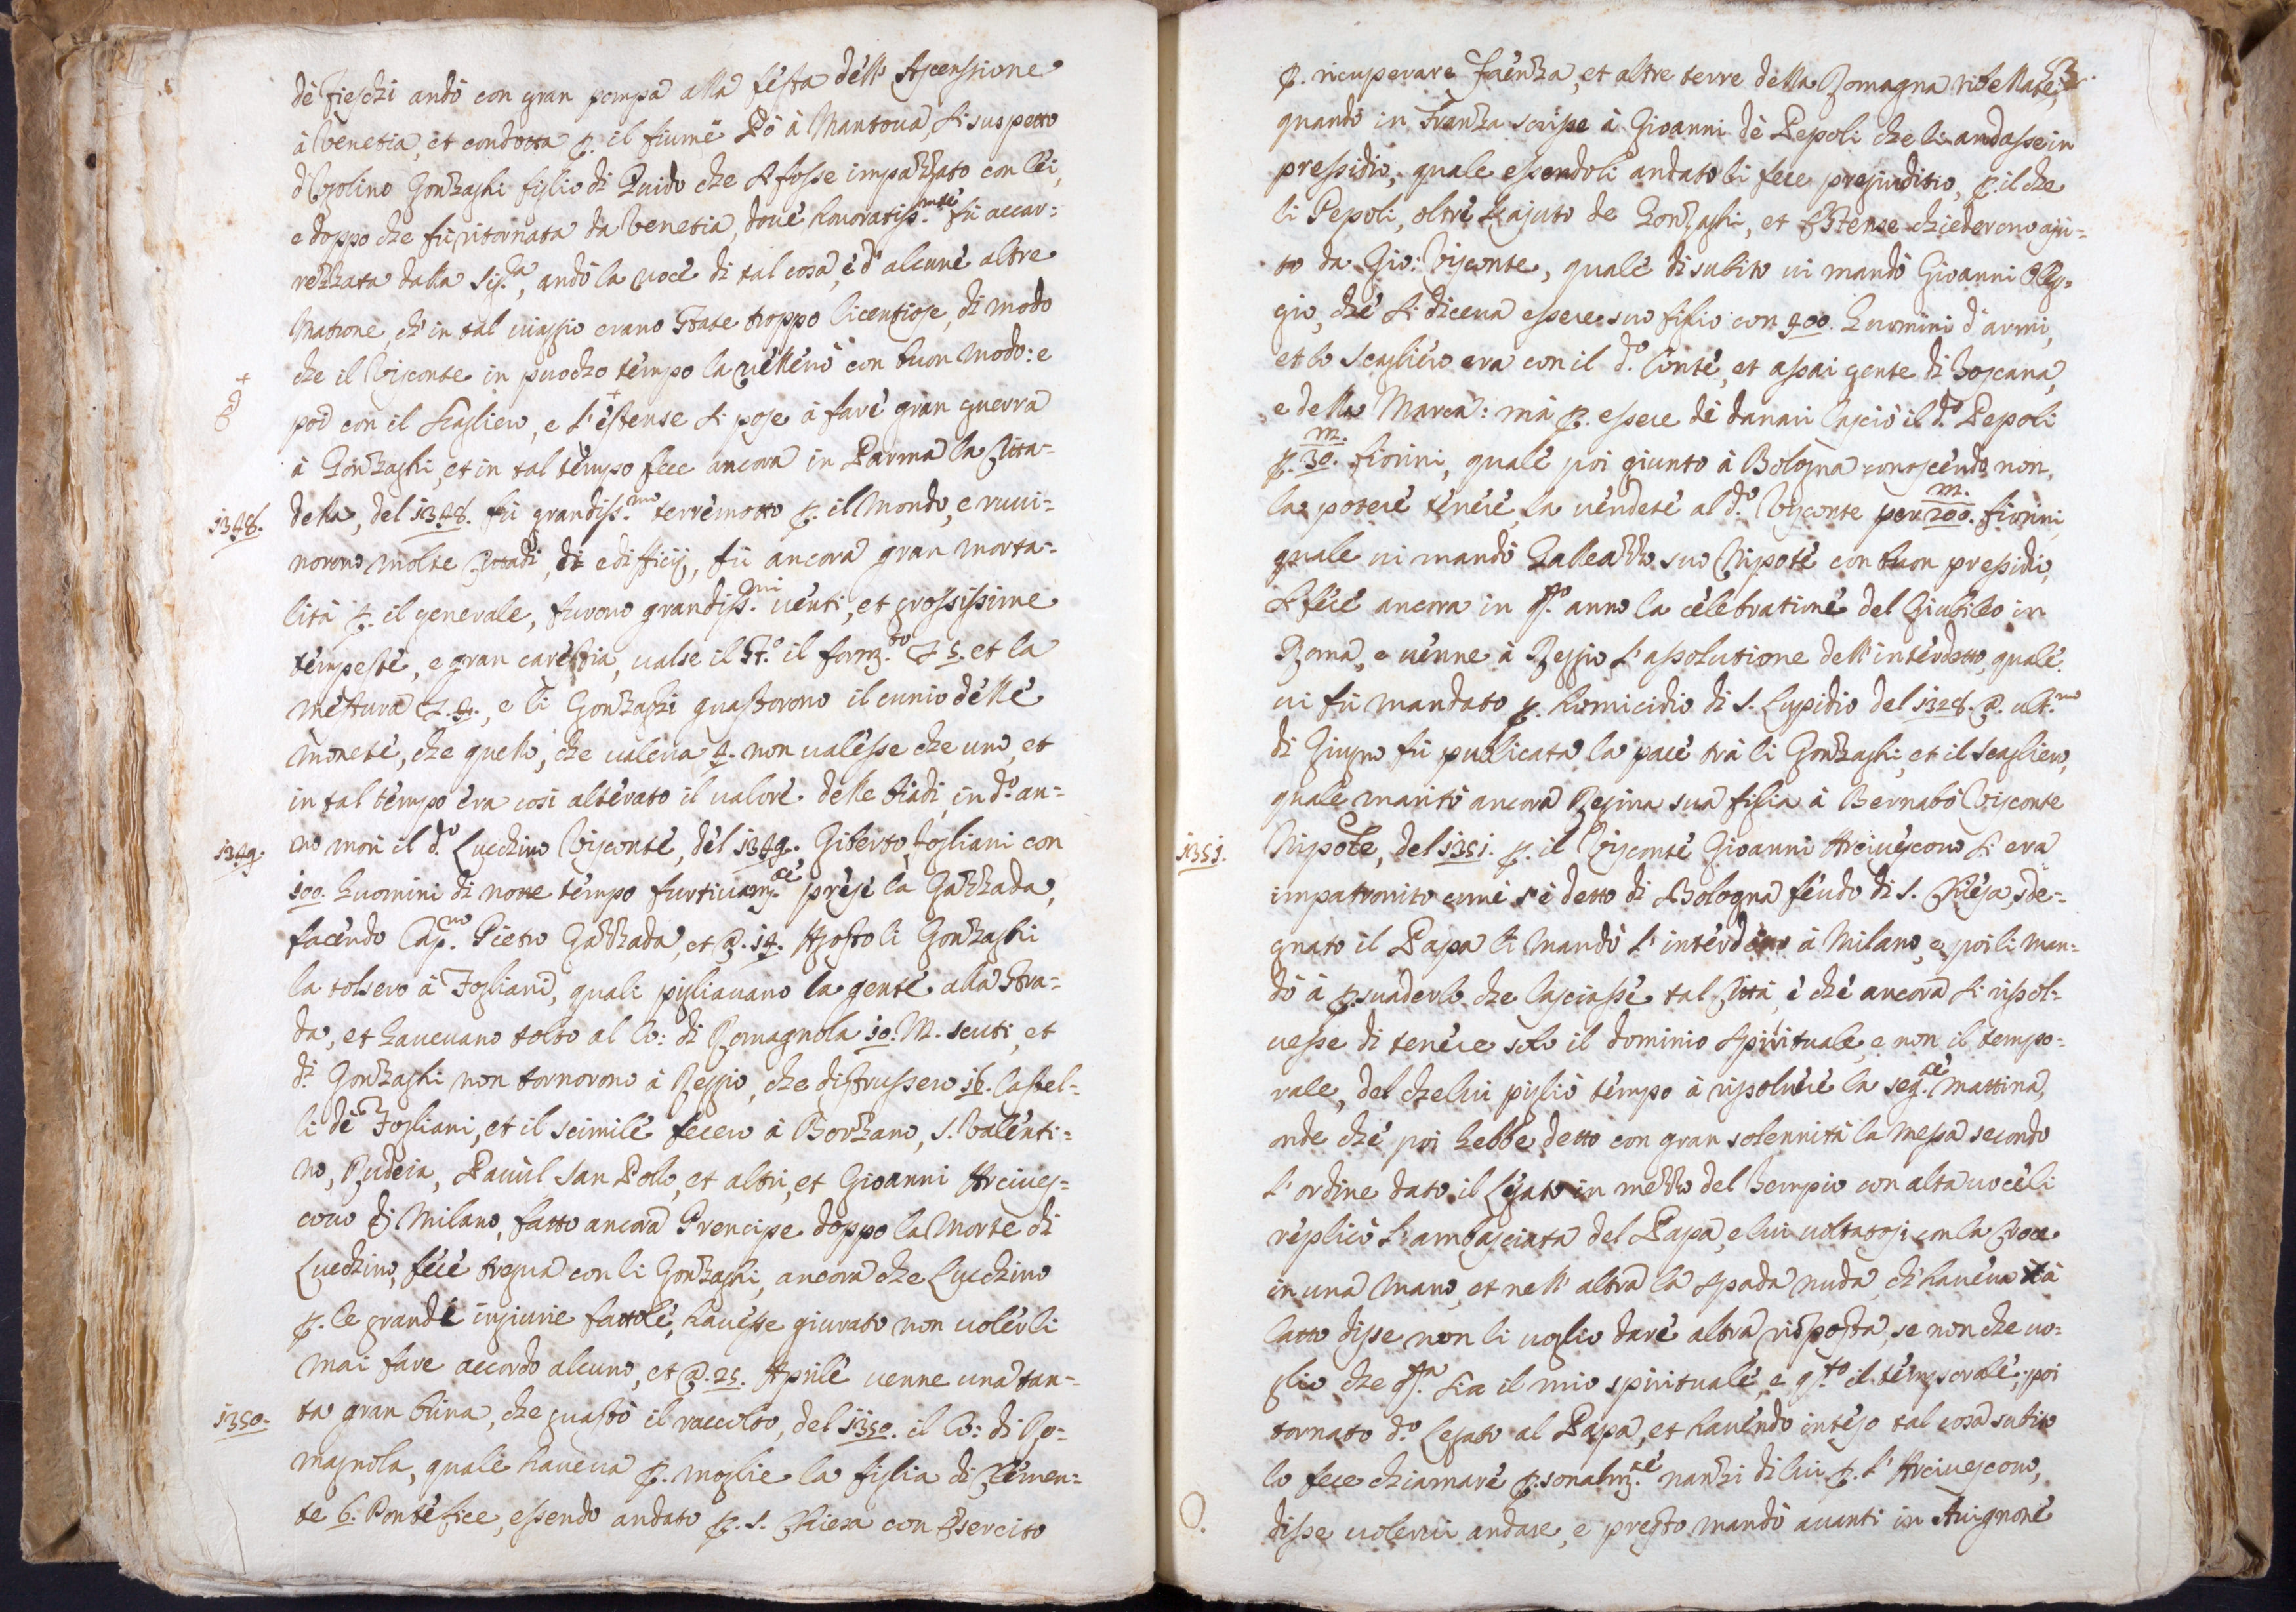 dè Fieschi andò con gran pompa alla festa dell' Ascensione
à Venetia, et condotta p. il fiume Pò à Mantova, si suspettò
d'Ugolino Gonzaghi figlio di Guido che si fosse impazzato con lei,
e doppo che fù ritornata da Venetia, dove honoratiss.mte fù accar=
rezzata dalla Sig.ia, andò la voce di tal cosa, e d'alcune altre
Matrone, ch'in tal viaggio erano state troppo licentiose, di modo
che il Visconte in puocho tempo la velleno con buon modo: e
poi con il Scagliero, e l'estense si pose à fare gran guerra
à Gonzaghi, et in tal tempo fece ancora in Parma la Citta=
1348.
della, del 1348. fù grandiss.mo terremotto p. il Mondo, e ruvi=
norono molte Cittadi, di edifficij, fù ancora gran morta=
lità p. il generale, furono grandiss.mi venti, et grossissime
tempeste, e gran carestia, valse il St.o il form.to £ 5. et la
mestura £. 4., e li Gonzaghi guastorono il cunio delle
monete, che quello, che valeva 4. non valesse che uno, et
in tal tempo era così alterato il valore delle biadi, in d.o an=
1349.
no morì il d.o Lucchino Visconte, del 1349. Giberto Fogliani con
100. huomini di notte tempo furtivam.te prese la Gazzada,
facendo Cap.no Pietro Gazzada, et @. 14. Agosto li Gonzaghi
la tolsero à Fogliani, quali pigliavano la gente alla stra=
da, et havevano tolto al Co: di Romagnola 10. M. scuti, et
d.i Gonzaghi non tornorono à Reggio, che distrussero 16. Castel=
li dè Fogliani, et il scimile fecero à Borzano, S. Valenti=
no, Rudeia, Pavul San Pollo, et altri, et Gioanni Arcives=
covo di Milano, fatto ancora Prencipe doppo la Morte di
Lucchino, fece tregua con li Gonzaghi, ancora che Lucchino
p. le grande ingiurie fattole, havesse giurato non volerli
mai fare accordo alcuno, et @. 25. Aprile venne una tan=
1350.
ta gran brina, che guastò il raccolto, del 1350. il Co: di Ro=
magnola, quale haveva p. moglie la figlia di Clemen=
te 6. Pontefice, essendo andato p. S. Chiesa con Esercito
3.
p. ricuperare Faenza, et altre terre della Romagna ribellate;
quando in Franza scrisse à Gioanni dè Pepoli che li andasse in
pressidio, quale essendoli andato li fece pregiuditio, p. il che
li Pepoli, oltre l'ajuto de Gonzaghi, et Estense chiederono aju=
to da Gio: Visconte, quale di subito vi mandò Gioanni Oleg=
gio, che si diceva essere suo figlio con 400. huomini d'armi,
et lo Scagliero era con il d.o Conte, et assai gente di Toscana,
e della Marca: mà p. essere di danari lasciò il d.o Pepoli
p. 30.m. fiorini, quale poi giunto à Bologna conoscendo non
la potere tenere, la vendete al d.o Visconte per 200.m. fiorini,
quale vi mandò Galleazzo suo Nipote con buon pressidio,
si fece ancora in q.to anno la celebratione del Giubileo in
Roma, e venne à Reggio l'assolutione dell'interdetto, quale
vi fù mandato p. homicidio di S. Lupidio del 1328. @. ult.mo
di Giugno fù publicata la pace trà li Gonzaghi, et il Scagliero,
quale maritò ancora Regina sua figlia à Bernabò Visconte
1351.
Nipote, del 1351. p. il Visconte Gioanni Arcivescovo si era
impatronito come s'è detto di Bologna feudo di S. Chiesa, sde=
gnato il Papa li mandò l'interdetto à Milano, e poi li man=
dò à p.suaderlo che lasciasse tal Città, è che ancora si risol=
vesse di tenere solo il dominio spirituale, e non il tempo=
rale, del che lui pigliò tempo à risolvere la seg.te mattina,
onde che poi hebbe detto con gran solennità la Messa secondo
l'ordine dato, il Legato in mezzo del tempio con alta voce li
replicò l'ambasciata del Papa, e lui voltatosi con la Croce
in una mano, et nell'altra la spada nuda, ch'haveva à
latto disse non li voglio dare altra risposta, se non che vo=
glio che q.ta sia il mio spirituale, e q.to il temporale, poi
tornato d.o Legato al Papa, et havendo inteso tal cosa subito
lo fece chiamare p.sonalm.te nanzi di lui p. l'Arcivescovo,
disse volervi andare, e presto mandò avanti in Avignone